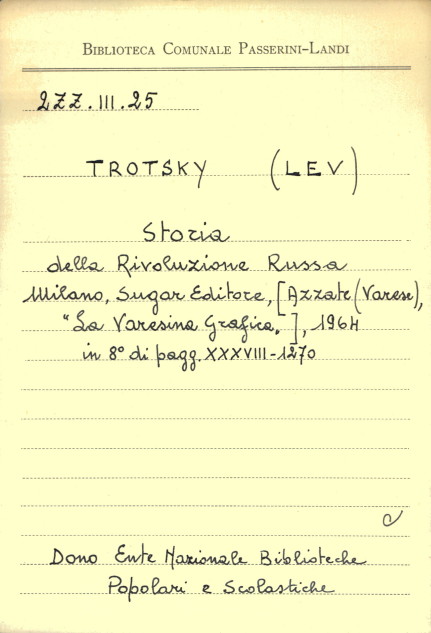 BIBLIOTECA COMUNALE PASSERINI-LANDI
2ZZ.III.25
TROTSKY (LEV)
Storia
della Rivoluzione Russa
Milano, Sugar Editore, [Azzate (Varese),
"La Varesina Grafica„], 1964
in 8° di pagg. XXXVIII-1270
a
Dono Ente Nazionale Biblioteche
Popolari e Scolastiche